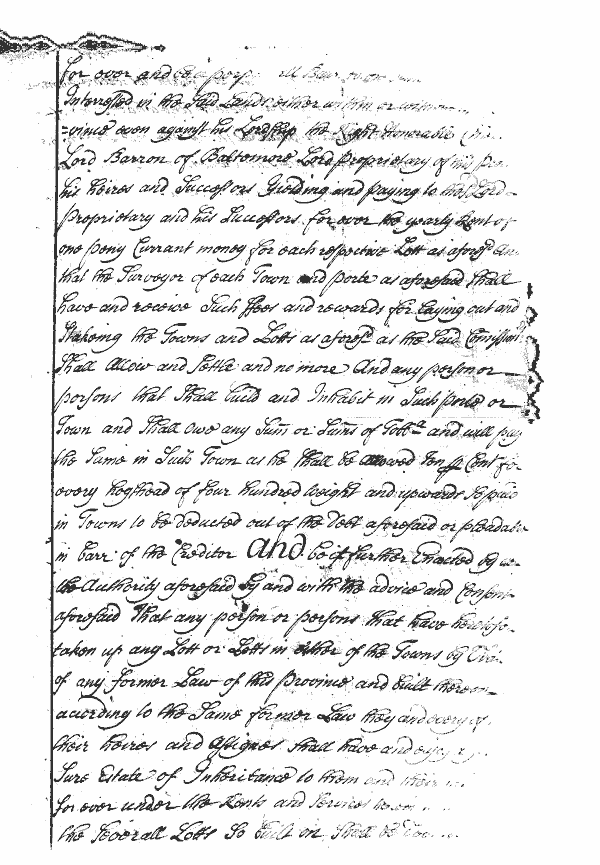 for ever and be a perp
Interrested in the Said Lands either within or
=vince even against his Lordship the Right Honorable
Lord Barron of Baltemore Lord Proprietary of this
his heires and Successors Yielding and paying to the Lord
Proprietary and his Successors for ever the yearly Rent of
one peny Currant money for each respective Lott as aforesd
that the Surveyor of each Town and porte as aforesaid Shall
have and receive Such ffees and rewards for Laying out and
Stakeing the Towns and Lotts as aforesd as the Said Comission
Shall Allow and Settle and no more And any person or
persons that Shall build and Inhabit in Such porte or
Town and Shall owe any Sum or Sums of Tobbo and will pay
the Same in Such Town as he Shall be allowed Ten p Cent for
every hogshead of four hundred weight and upwards So paid
in Towns to be deducted out of the debt aforesaid or pleadable
in barr of the Creditor And be it further Enacted by
the Authority aforesaid by and with the advice and Consent
aforesaid That any person or persons that have heretofo
taken up any Lott or Lotts in either of the Towns by
of any former Law of this Province and built thereon
according to the Same former Law they and every of
their heires and Assignes Shall have and enjoy
Sure Estate of Inheritance to them and their
for ever under the Rents and Services
the Severall Lotts So built on Shall be